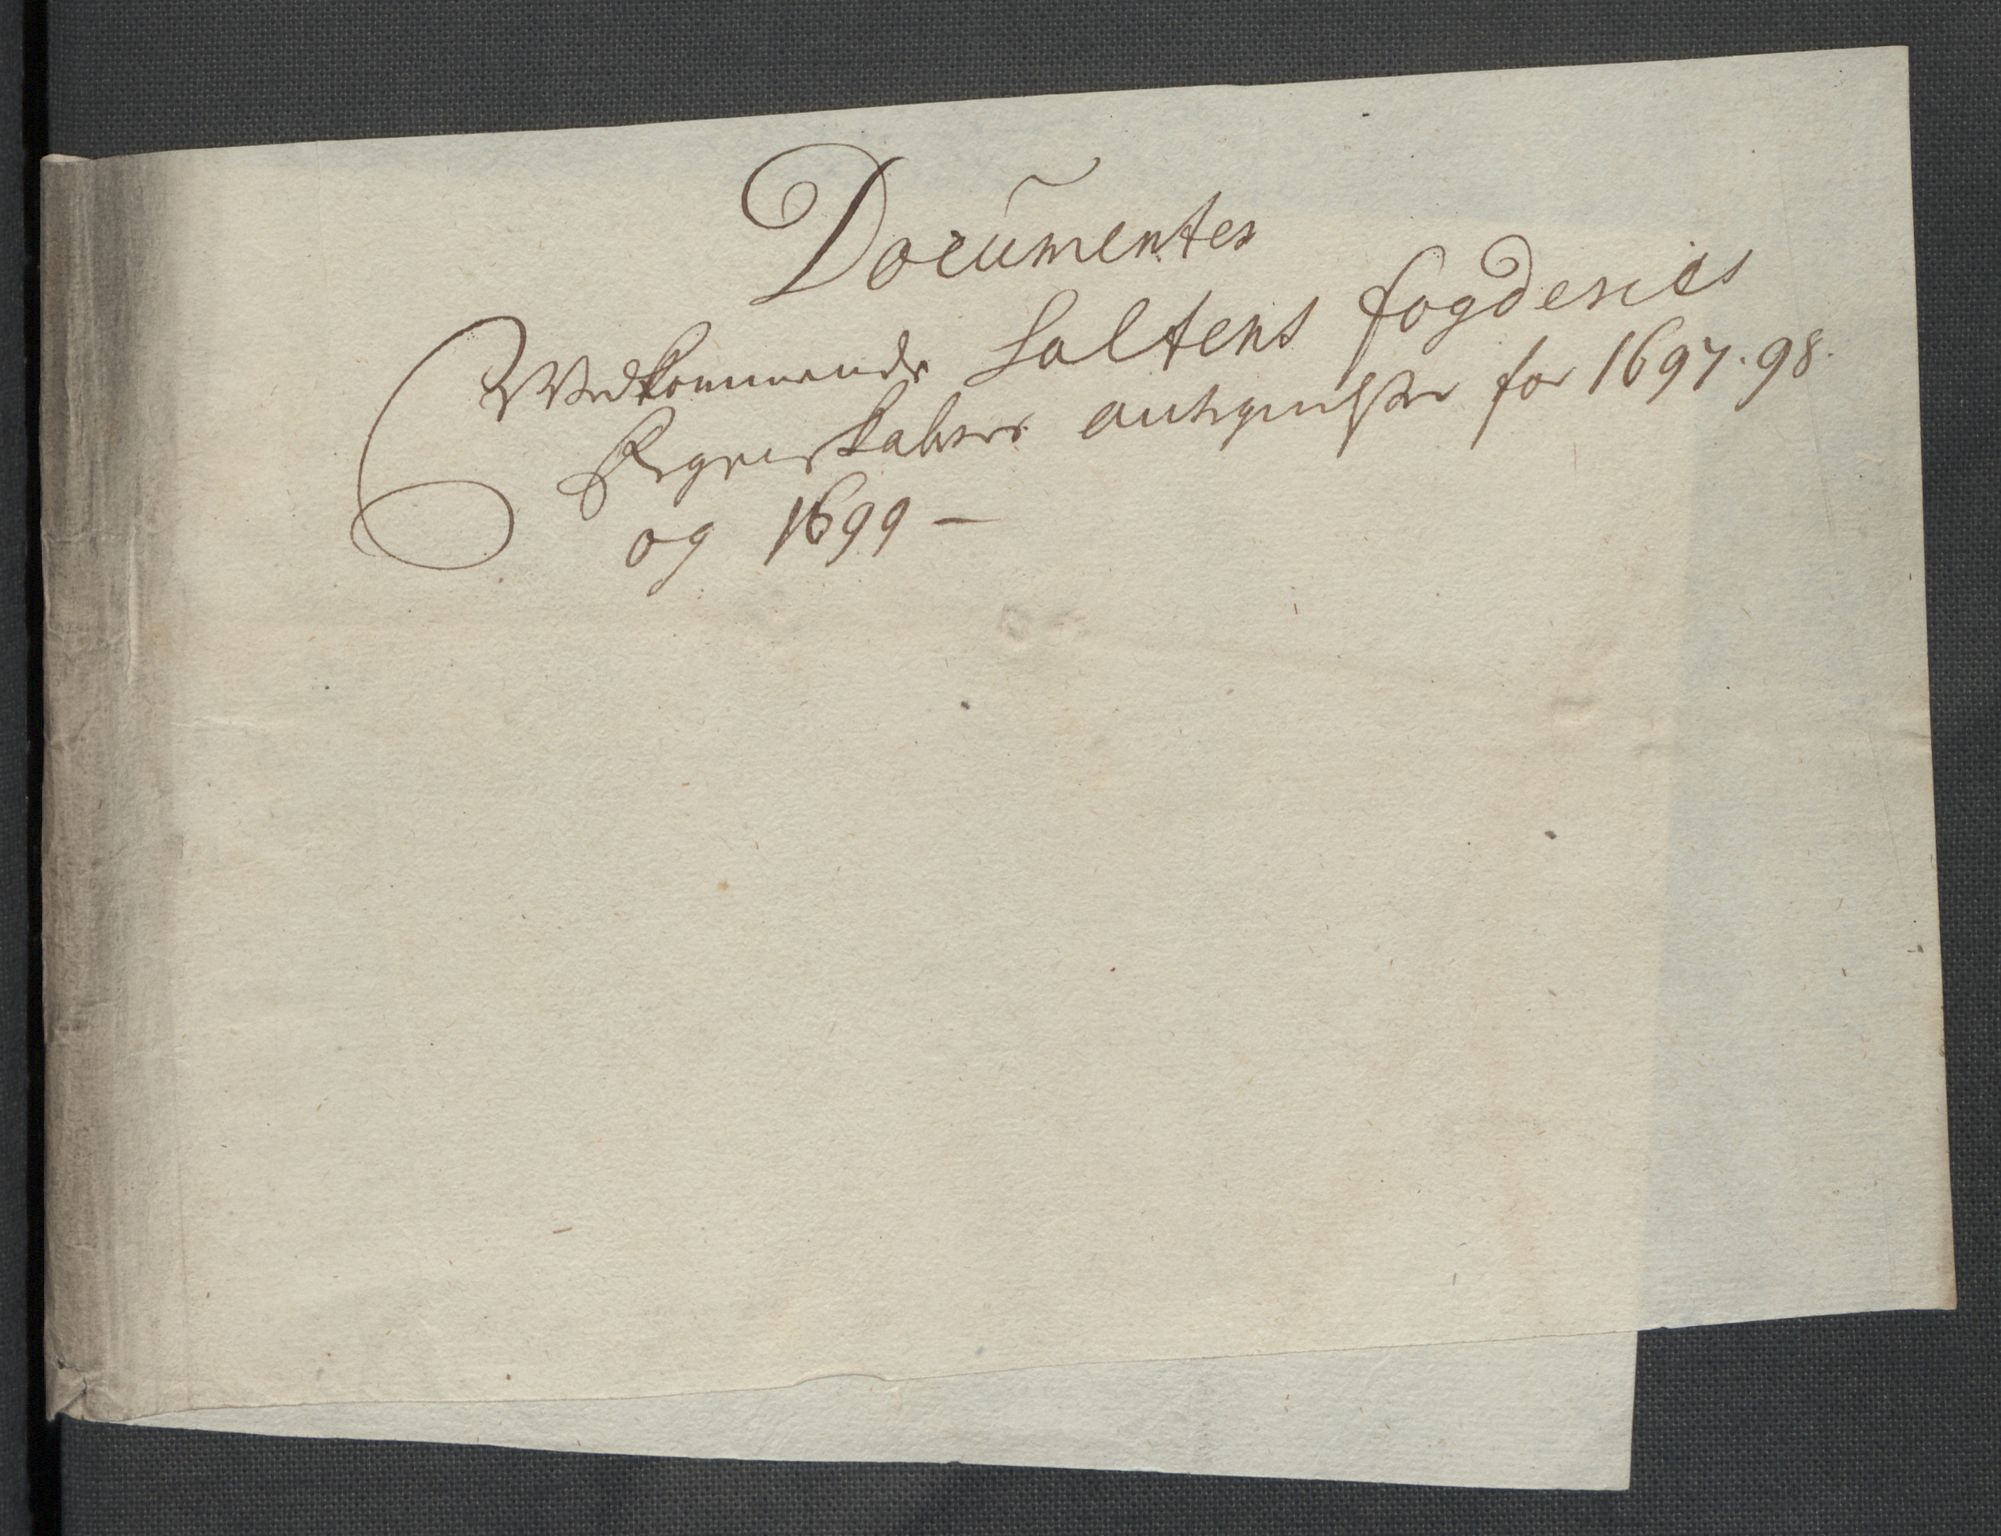 Documenter
Vedkommende Saltens fogderies
Regenskabers antegnelser for 1697. 98.
og 1699 -